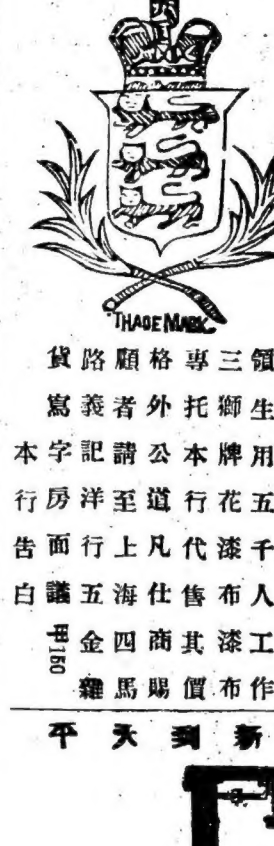 THADE MARK
領生用五千人工作
三獅牌花漆布漆布
專托本行代售其價
格外公道凡仕商賜
顧者請至上海四馬
路義記洋行五金雜
貨寫字房面議 甲150
本行告白
新到天平